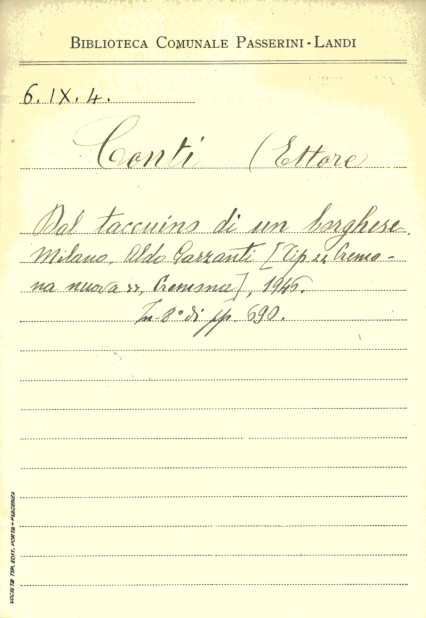 BIBLIOTECA COMUNALE PASSERINI-LANDI
6. IX. 4.
Conti (Ettore
Dal taccuino di un borghese.
Milano. Aldo Garzanti [Tip. "Cremo-
na nuova", Cremona], 1946.
In-8° di pp. 690.
SOCIETÀ TIP. EDIT. PORTA - PIACENZA